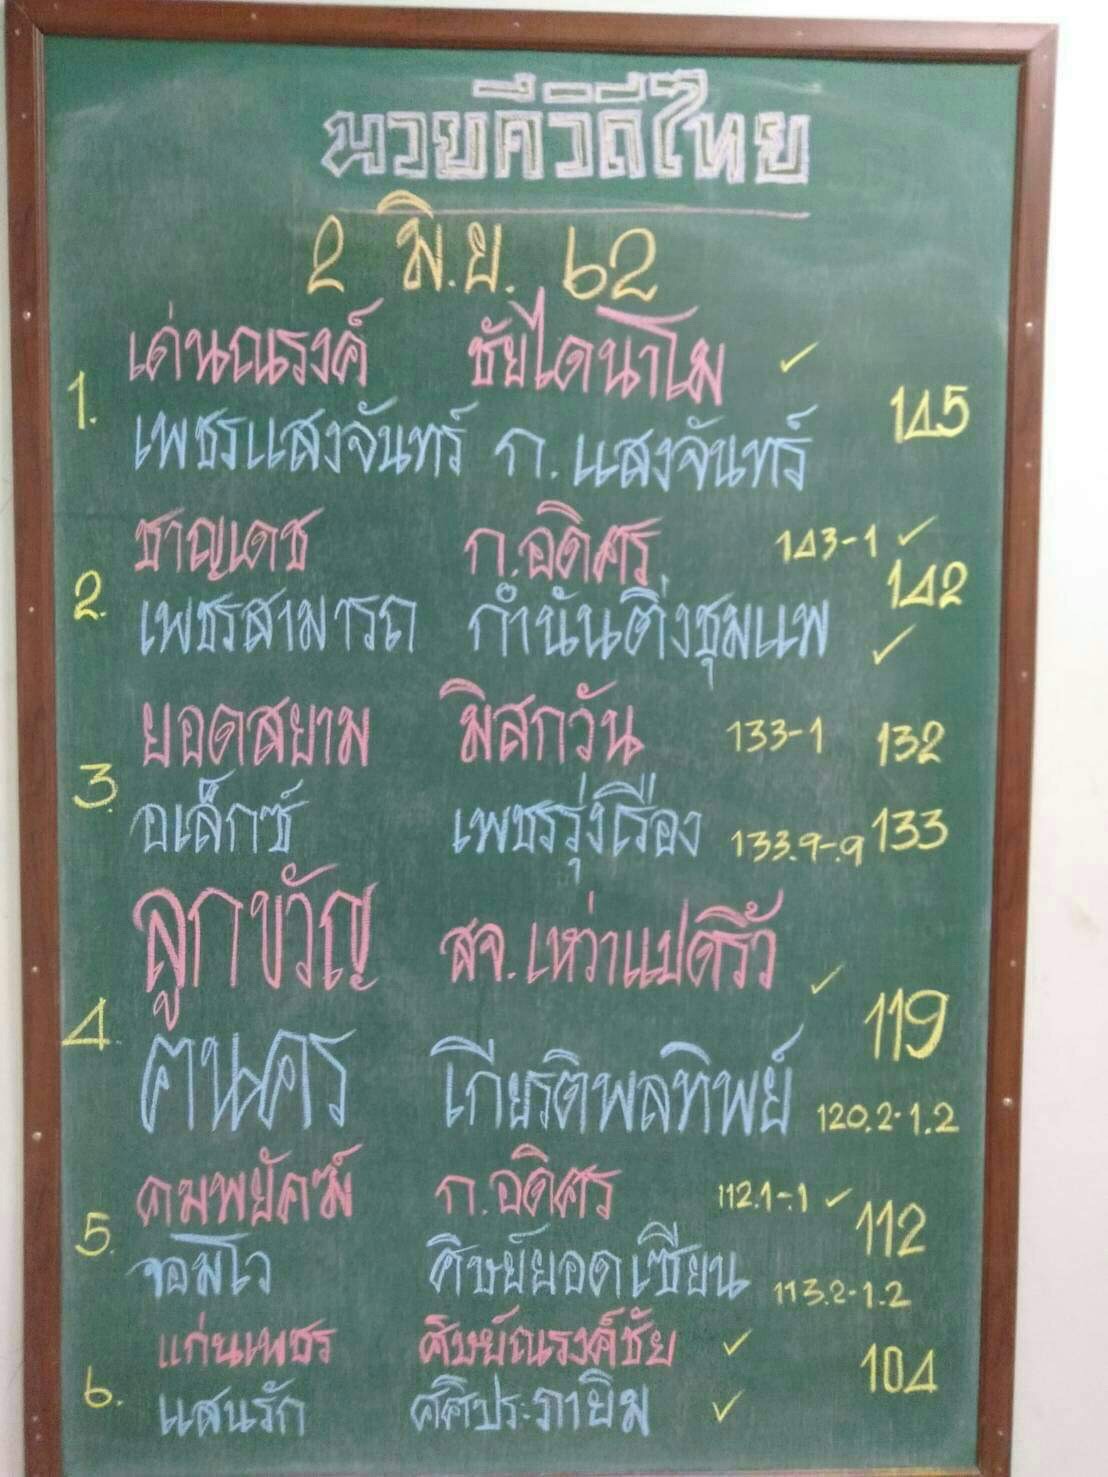 มวยดีวิถีไทย
2 มิ.ย. 62
เด่นณรงค์ ชัยไดนาโม ✓
1. 145
เพชรแสงจันทร์ ก.แสงจันทร์
ชาญเดช ก.อดิศร 143-1 ✓
2. 142
เพชรสามารถ กำนันติ่งชุมแพ ✓
ยอดสยาม มิสกวัน 133-1 132
3.
อเล็กซ์ เพชรรุ่งเรือง 133.9-.9 133
ลูกขวัญ สจ.เหว่าแปดริ้ว ✓
4. 119
ฅนคร เกียรติพลทิพย์ 120.2-1.2
คมพยัคฆ์ ก.อดิศร 112.1-.1 ✓
5. 112
จอมโว ศิษย์ยอดเซียน 113.2-1.2
แก่นเพชร ศิษย์ณรงค์ชัย ✓
6. 104
แสนรัก ศศิประภายิม ✓